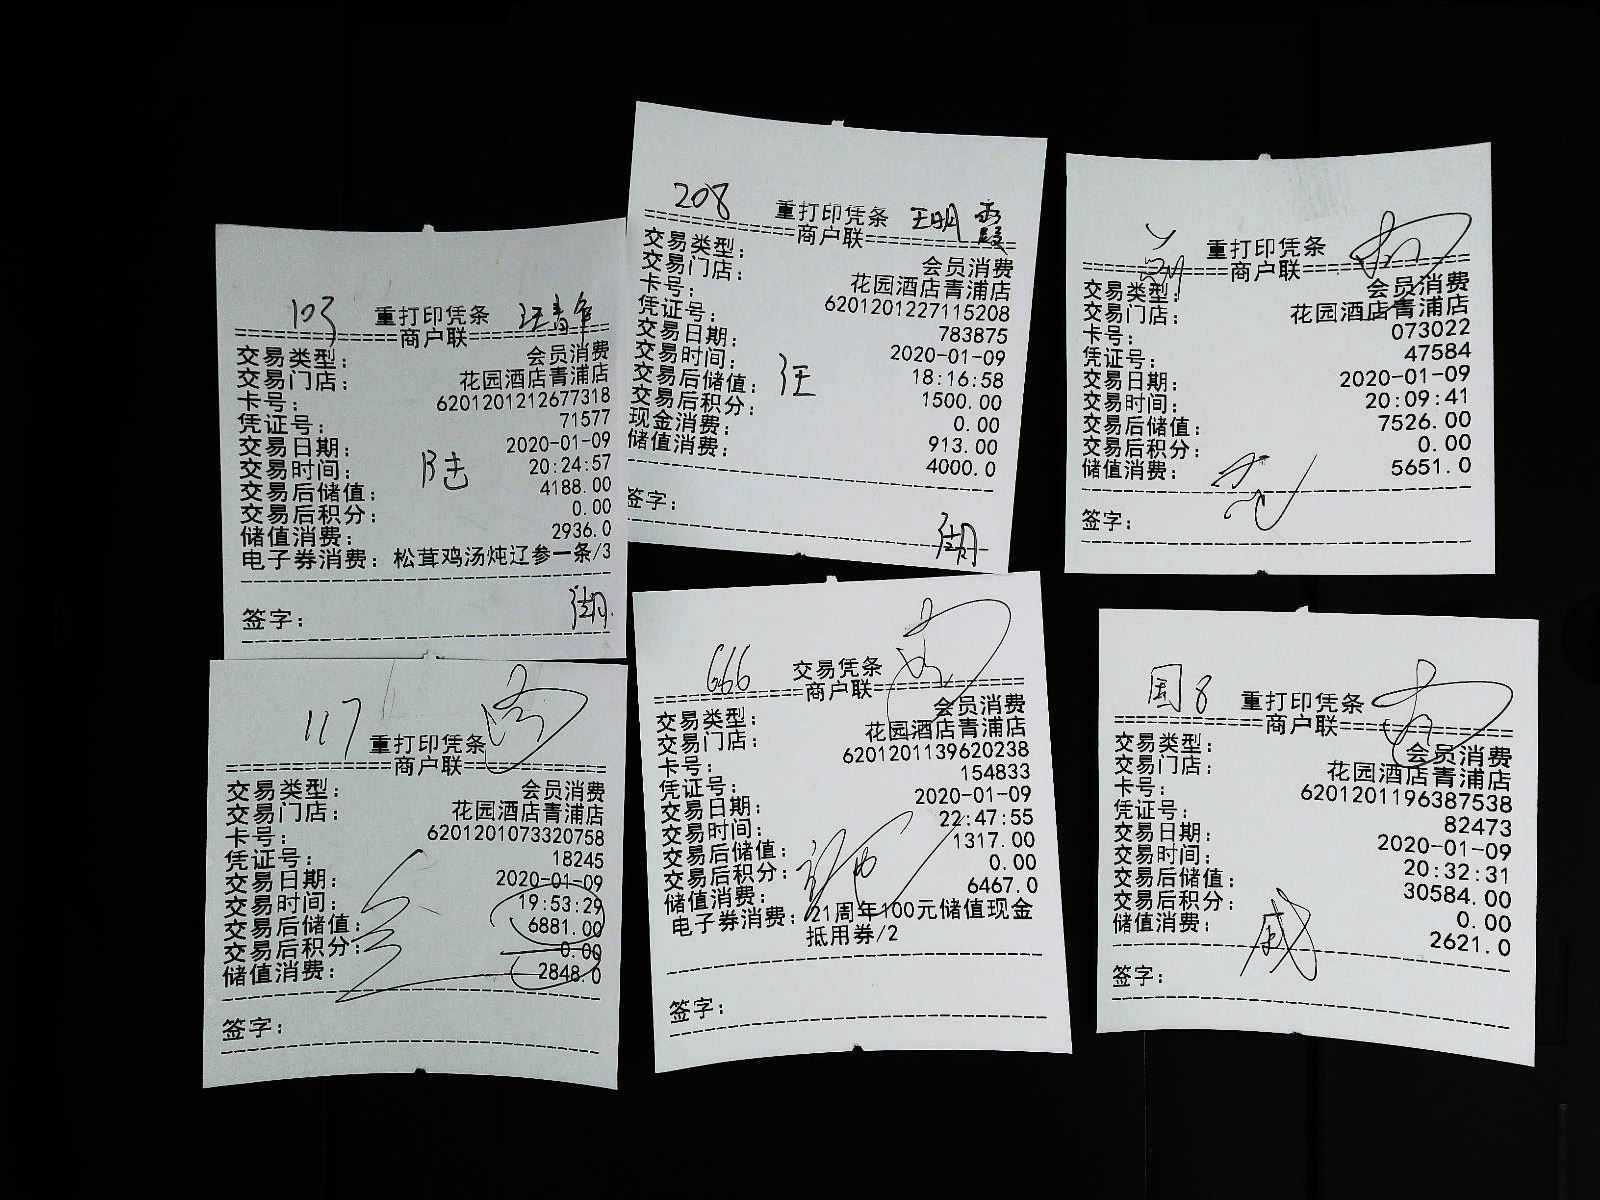 103 重打印凭条 汪青华
商户联
交易类型： 会员消费
交易门店： 花园酒店青浦店
卡号： 6201201212677318
凭证号： 71577
交易日期： 2020-01-09
交易时间： 20:24:57
交易后储值： 4188.00
交易后积分： 0.00
储值消费： 2936.0
电子券消费： 松茸鸡汤炖辽参一条/3
签字：
208 重打印凭条 王明霞
商户联
交易类型： 会员消费
交易门店： 花园酒店青浦店
卡号： 6201201227115208
凭证号： 783875
交易日期： 2020-01-09
交易时间： 18:16:58
交易后储值： 1500.00
交易后积分： 0.00
现金消费： 913.00
储值消费： 4000.0
汪
签字：
重打印凭条
商户联
交易类型： 会员消费
交易门店： 花园酒店青浦店
卡号： 073022
凭证号： 47584
交易日期： 2020-01-09
交易时间： 20:09:41
交易后储值： 7526.00
交易后积分： 0.00
储值消费： 5651.0
签字：
117 重打印凭条
商户联
交易类型： 会员消费
交易门店： 花园酒店青浦店
卡号： 6201201073320758
凭证号： 18245
交易日期： 2020-01-09
交易时间： 19:53:29
交易后储值： 6881.00
交易后积分： 0.00
储值消费： 2848.0
签字：
666 交易凭条
商户联
交易类型： 会员消费
交易门店： 花园酒店青浦店
卡号： 6201201139620238
凭证号： 154833
交易日期： 2020-01-09
交易时间： 22:47:55
交易后储值： 1317.00
交易后积分： 0.00
储值消费： 6467.0
电子券消费： 21周年100元储值现金
抵用券/2
签字：
国8 重打印凭条
商户联
交易类型： 会员消费
交易门店： 花园酒店青浦店
卡号： 6201201196387538
凭证号： 82473
交易日期： 2020-01-09
交易时间： 20:32:31
交易后储值： 30584.00
交易后积分： 0.00
储值消费： 2621.0
签字：